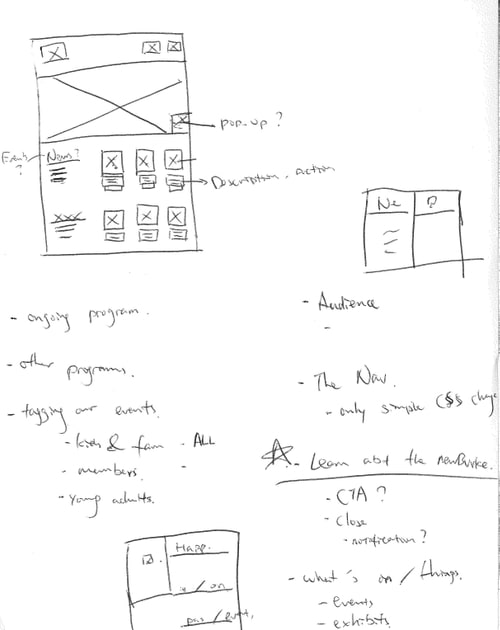 pop-up ?
Events
?
News ?
Description . action
XXX
Ne
- ongoing program.
- other programs.
- tagging our events.
- kids & fam . ALL
- members. -
- young adults.
Happ.
/ on
/ event,
- Audience
-
- The Nav.
- only simple CSS change
- Learn abt the newBurke.
- CTA ?
- Close
- notification ?
- what's on / things.
- events
- exhibits